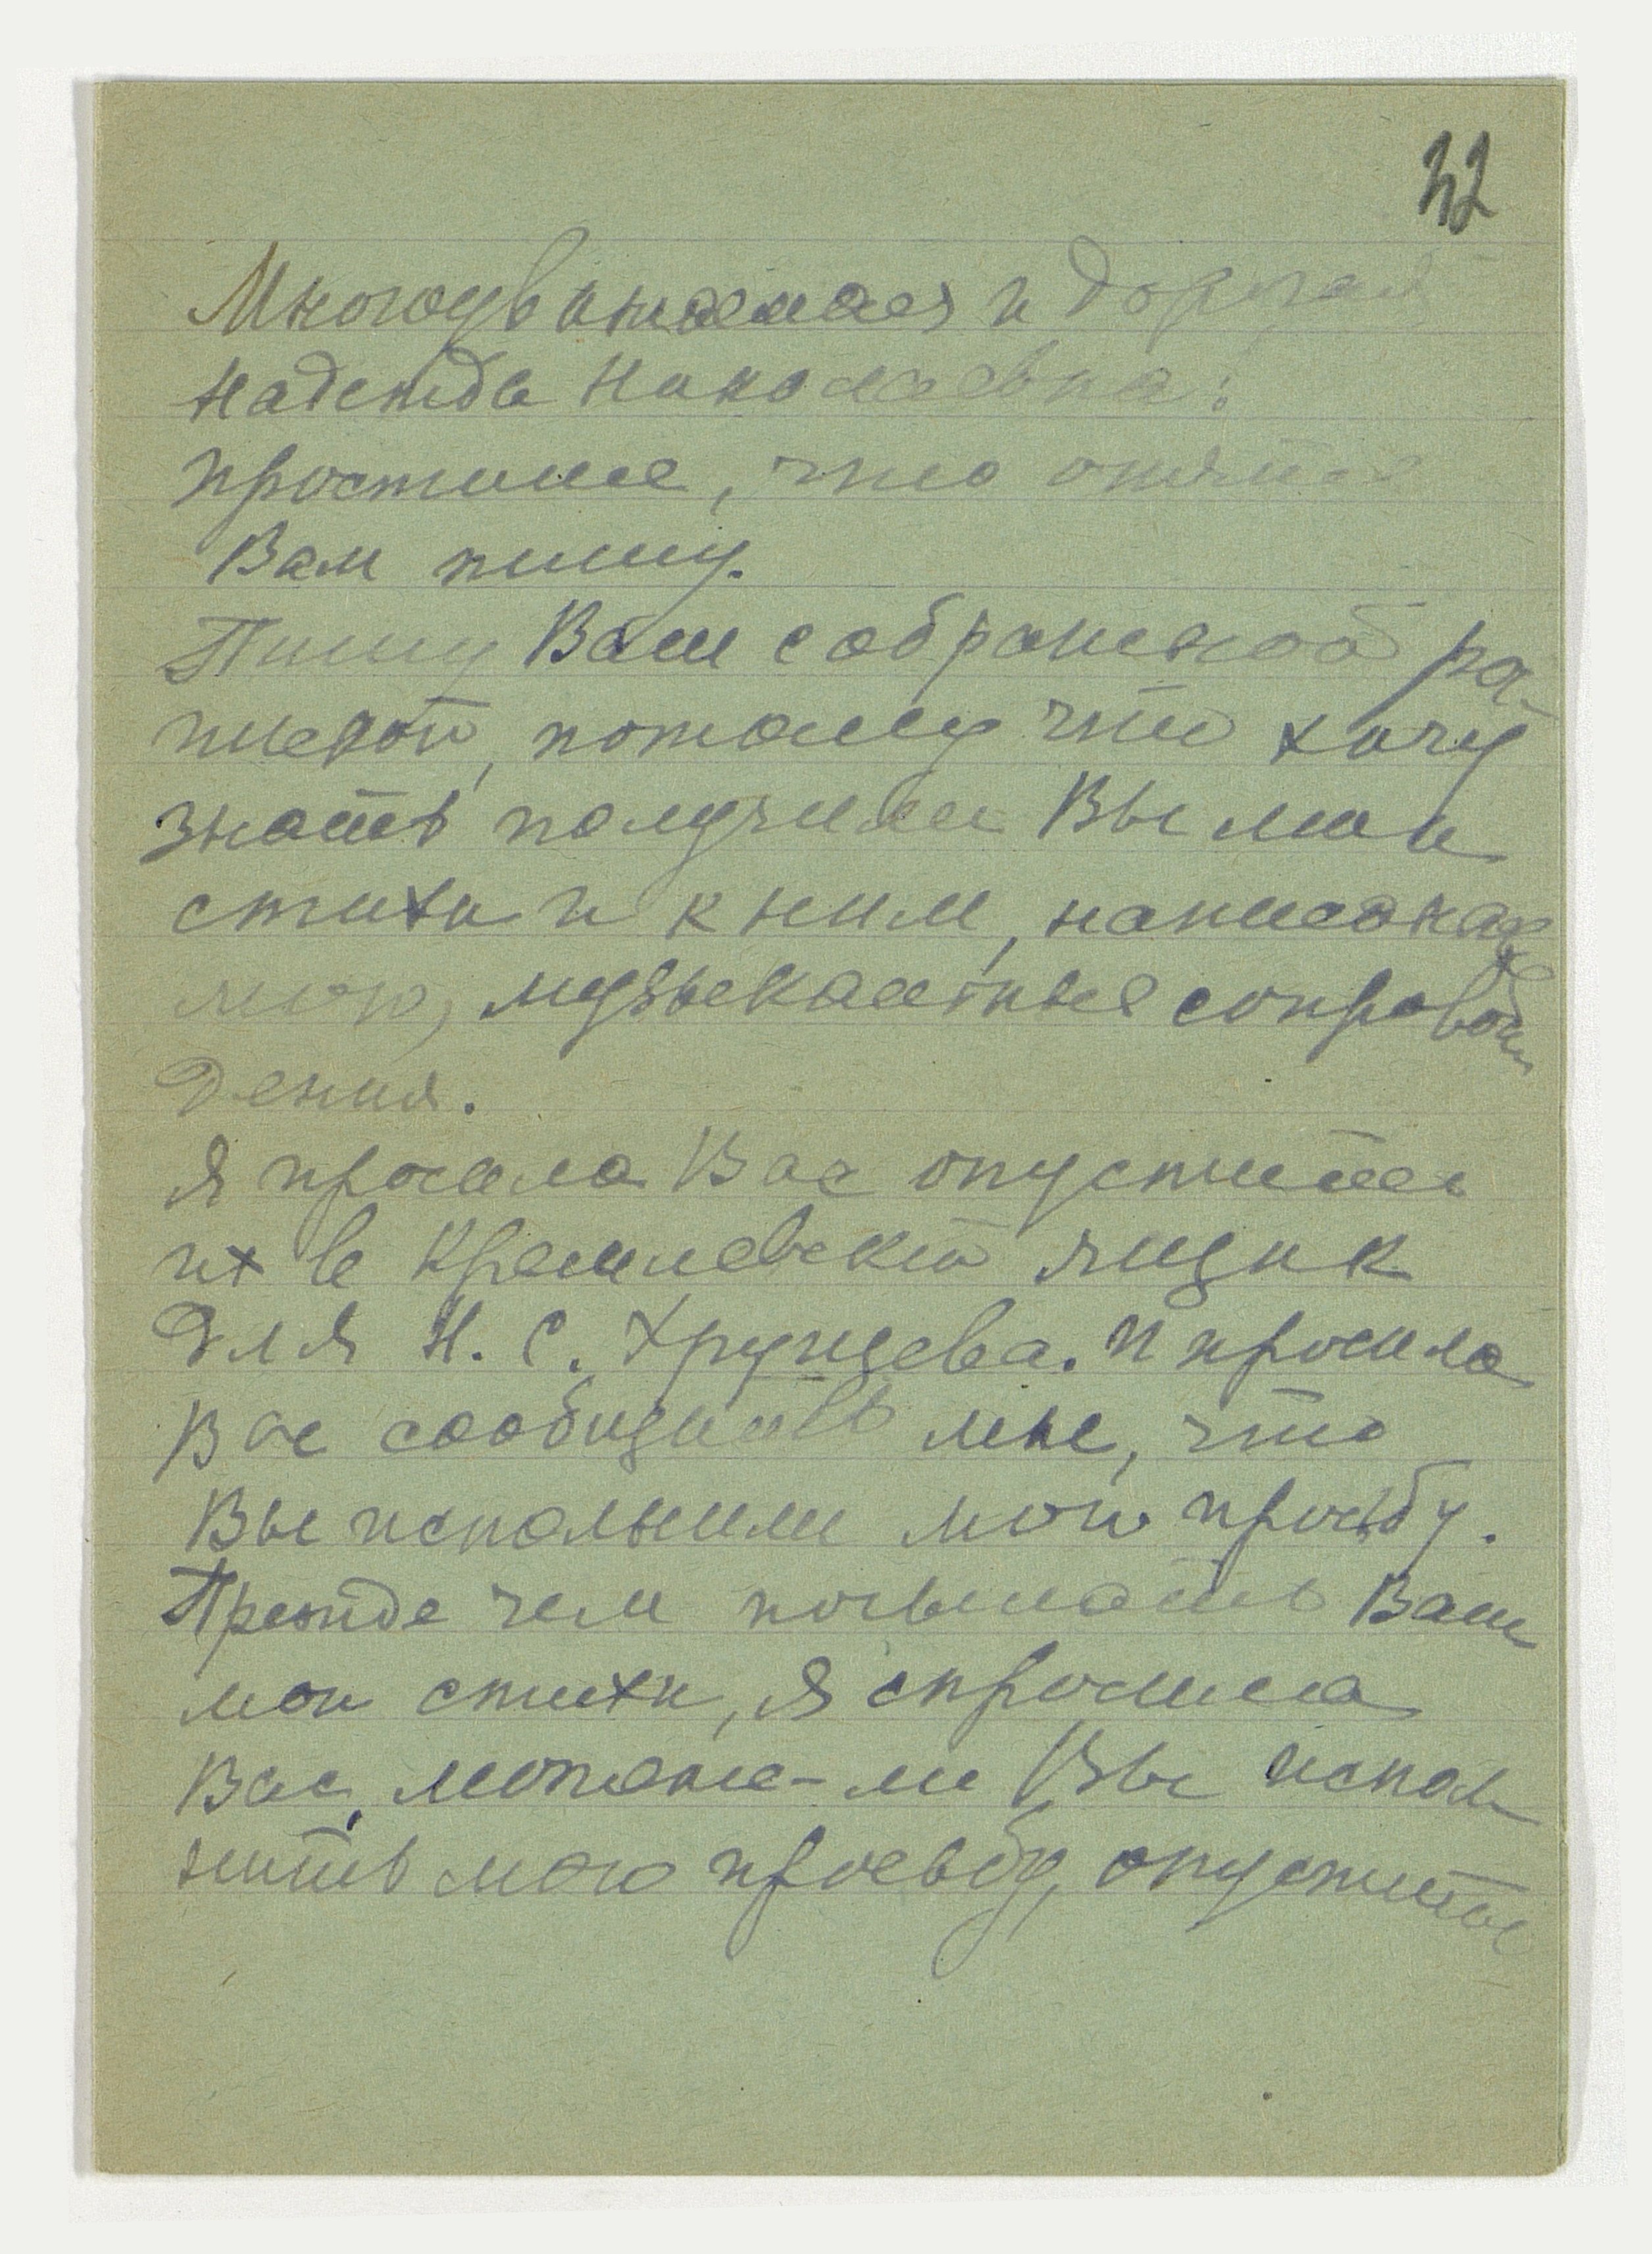 32
Многоуважаемая и дорогая
Надежда Николаевна:
простите, что опять
Вам пишу.
Пишу Вам с обратной рас
пиской, потому что хочу
знать получили Вы мои
стихи и к ним, написанные
мою, музыкальные сопровож
дения.
Я просила Вас опустить
их в Кремлевский ящик
для Н. С. Хрущева. и просила
Вас сообщить мне, что
Вы исполнили мою просьбу.
Прежде чем посылать Вам
мои стихи, я спросила
Вас, можете-ли Вы испол
нить мою просьбу, опустить